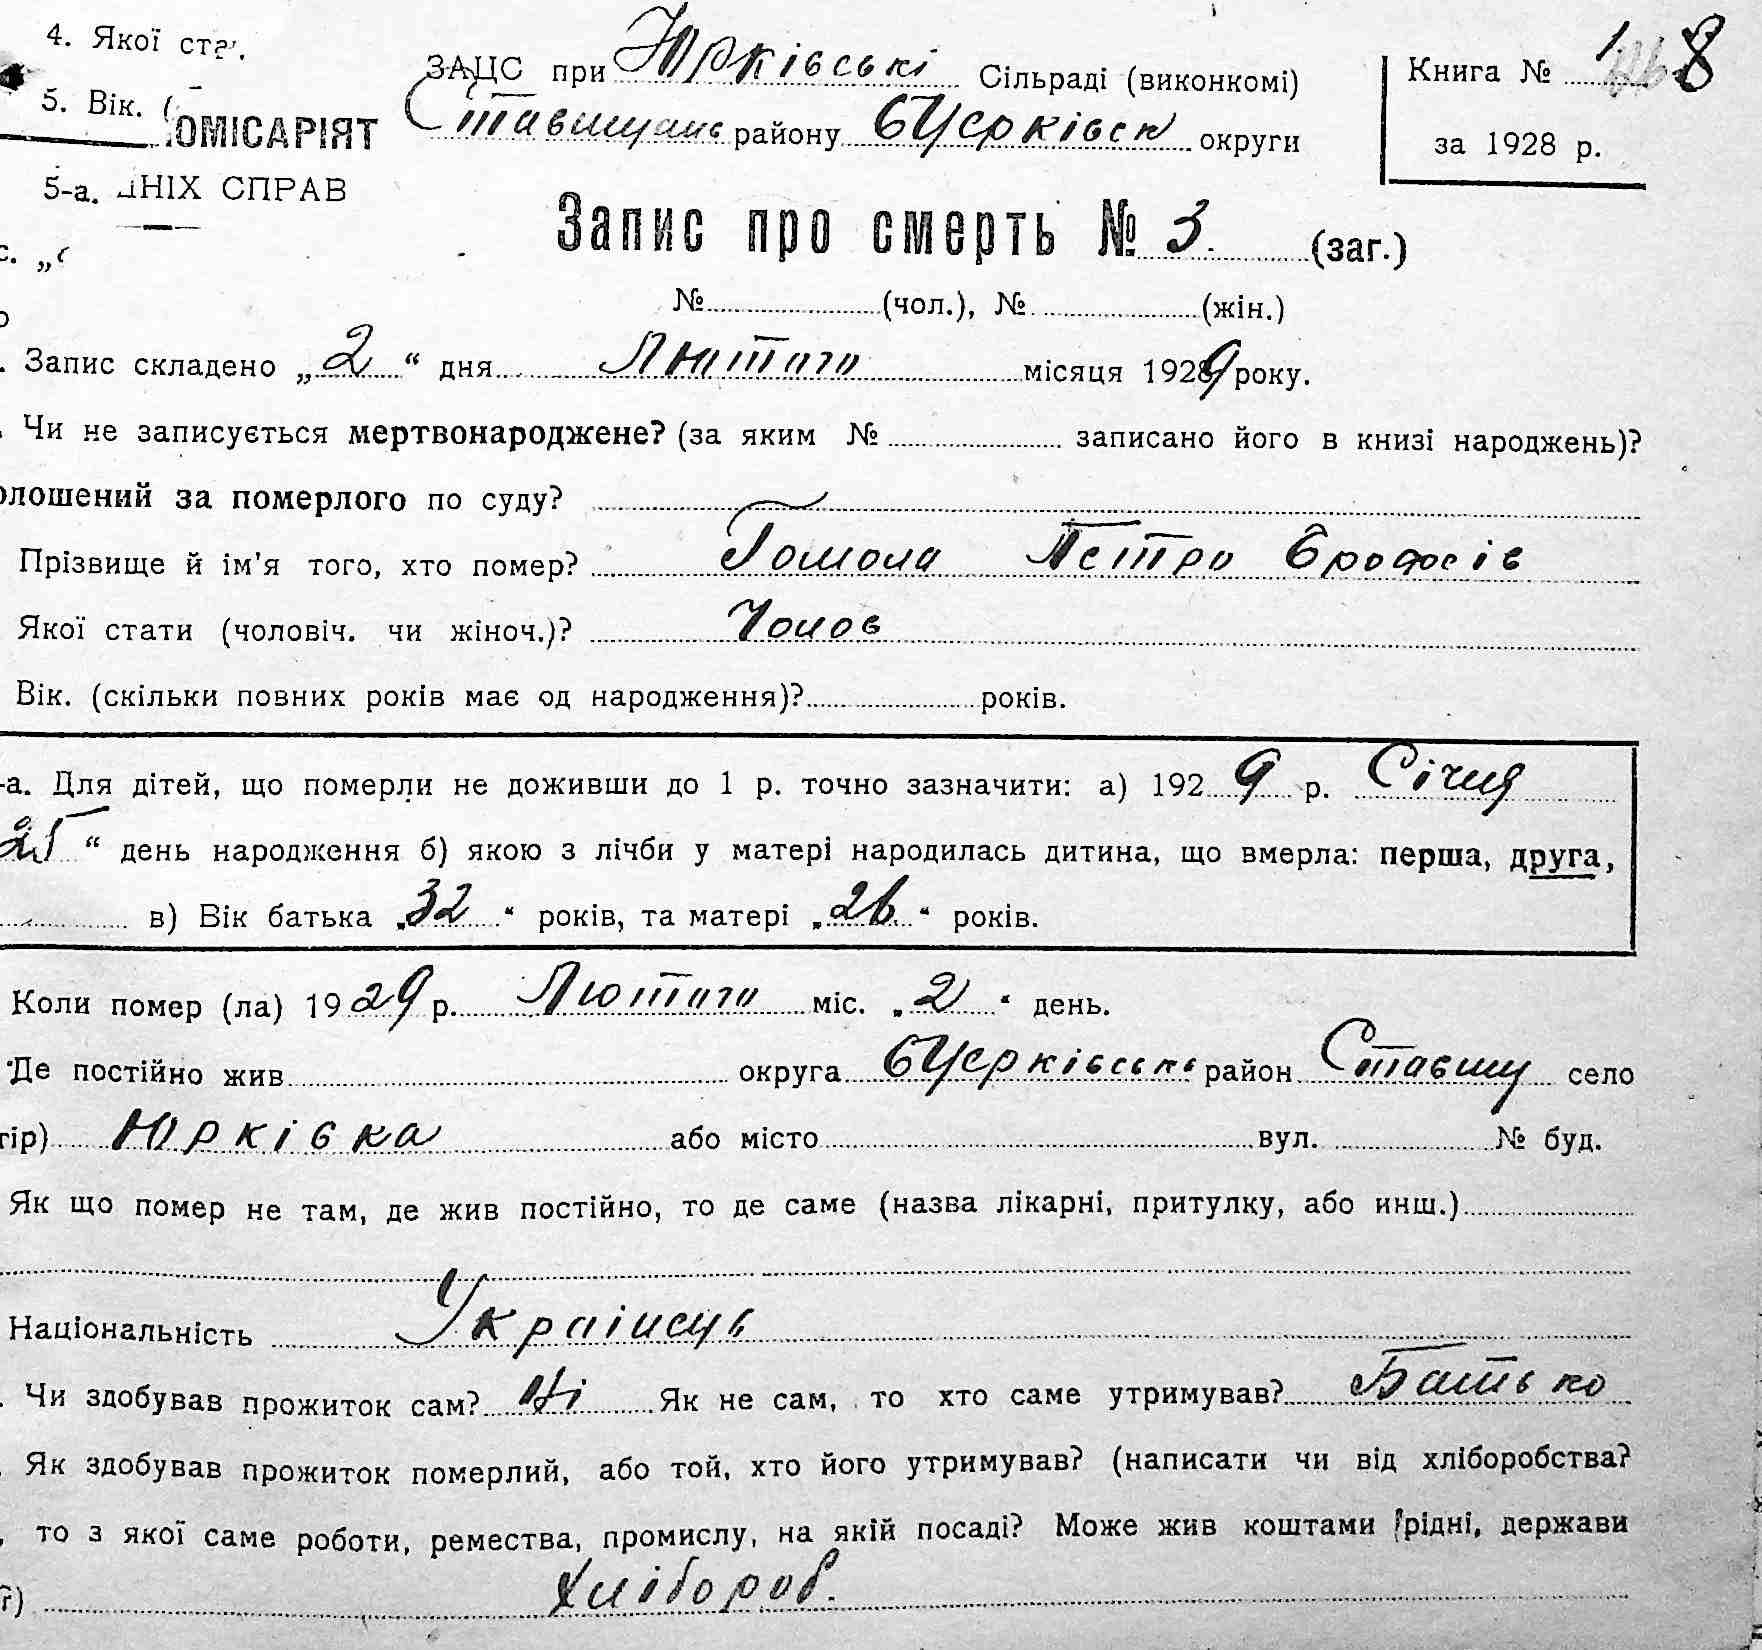 4. Якої ста
ЗАЦС при Юрківські Сільраді (виконкомі)
Книга № 8
5. Вік. (
ОМІСАРІЯТ
Ставищанс району БЦерківск округи
за 1928 р.
5-а. ДНІХ СПРАВ
Запис про смерть № 3. (заг.)
№ (чол.), № (жін.)
Запис складено „2“ дня Лютого місяця 1929 року.
Чи не записується мертвонароджене? (за яким № записано його в книзі народжень)?
олошений за померлого по суду?
Прізвище й ім'я того, хто помер? Гомола Петро Єрофеїв
Якої стати (чоловіч. чи жіноч.)? Чолов
Вік. (скільки повних років має од народження)? років.
-а. Для дітей, що померли не доживши до 1 р. точно зазначити: а) 1929 р. Січня
25“ день народження б) якою з лічби у матері народилась дитина, що вмерла: перша, друга,
в) Вік батька „32“ років, та матері „26“ років.
Коли помер (ла) 1929 р. Лютого міс. „2“ день.
Де постійно жив округа БЦерківськ район Ставищ село
тір) Юрківка або місто вул. № буд.
Як що помер не там, де жив постійно, то де саме (назва лікарні, притулку, або инш.)
Національність Українець
Чи здобував прожиток сам? Ні Як не сам, то хто саме утримував? Батько
Як здобував прожиток померлий, або той, хто його утримував? (написати чи від хліборобства?
, то з якої саме роботи, ремества, промислу, на якій посаді? Може жив коштами рідні, держави
Хлібороб.